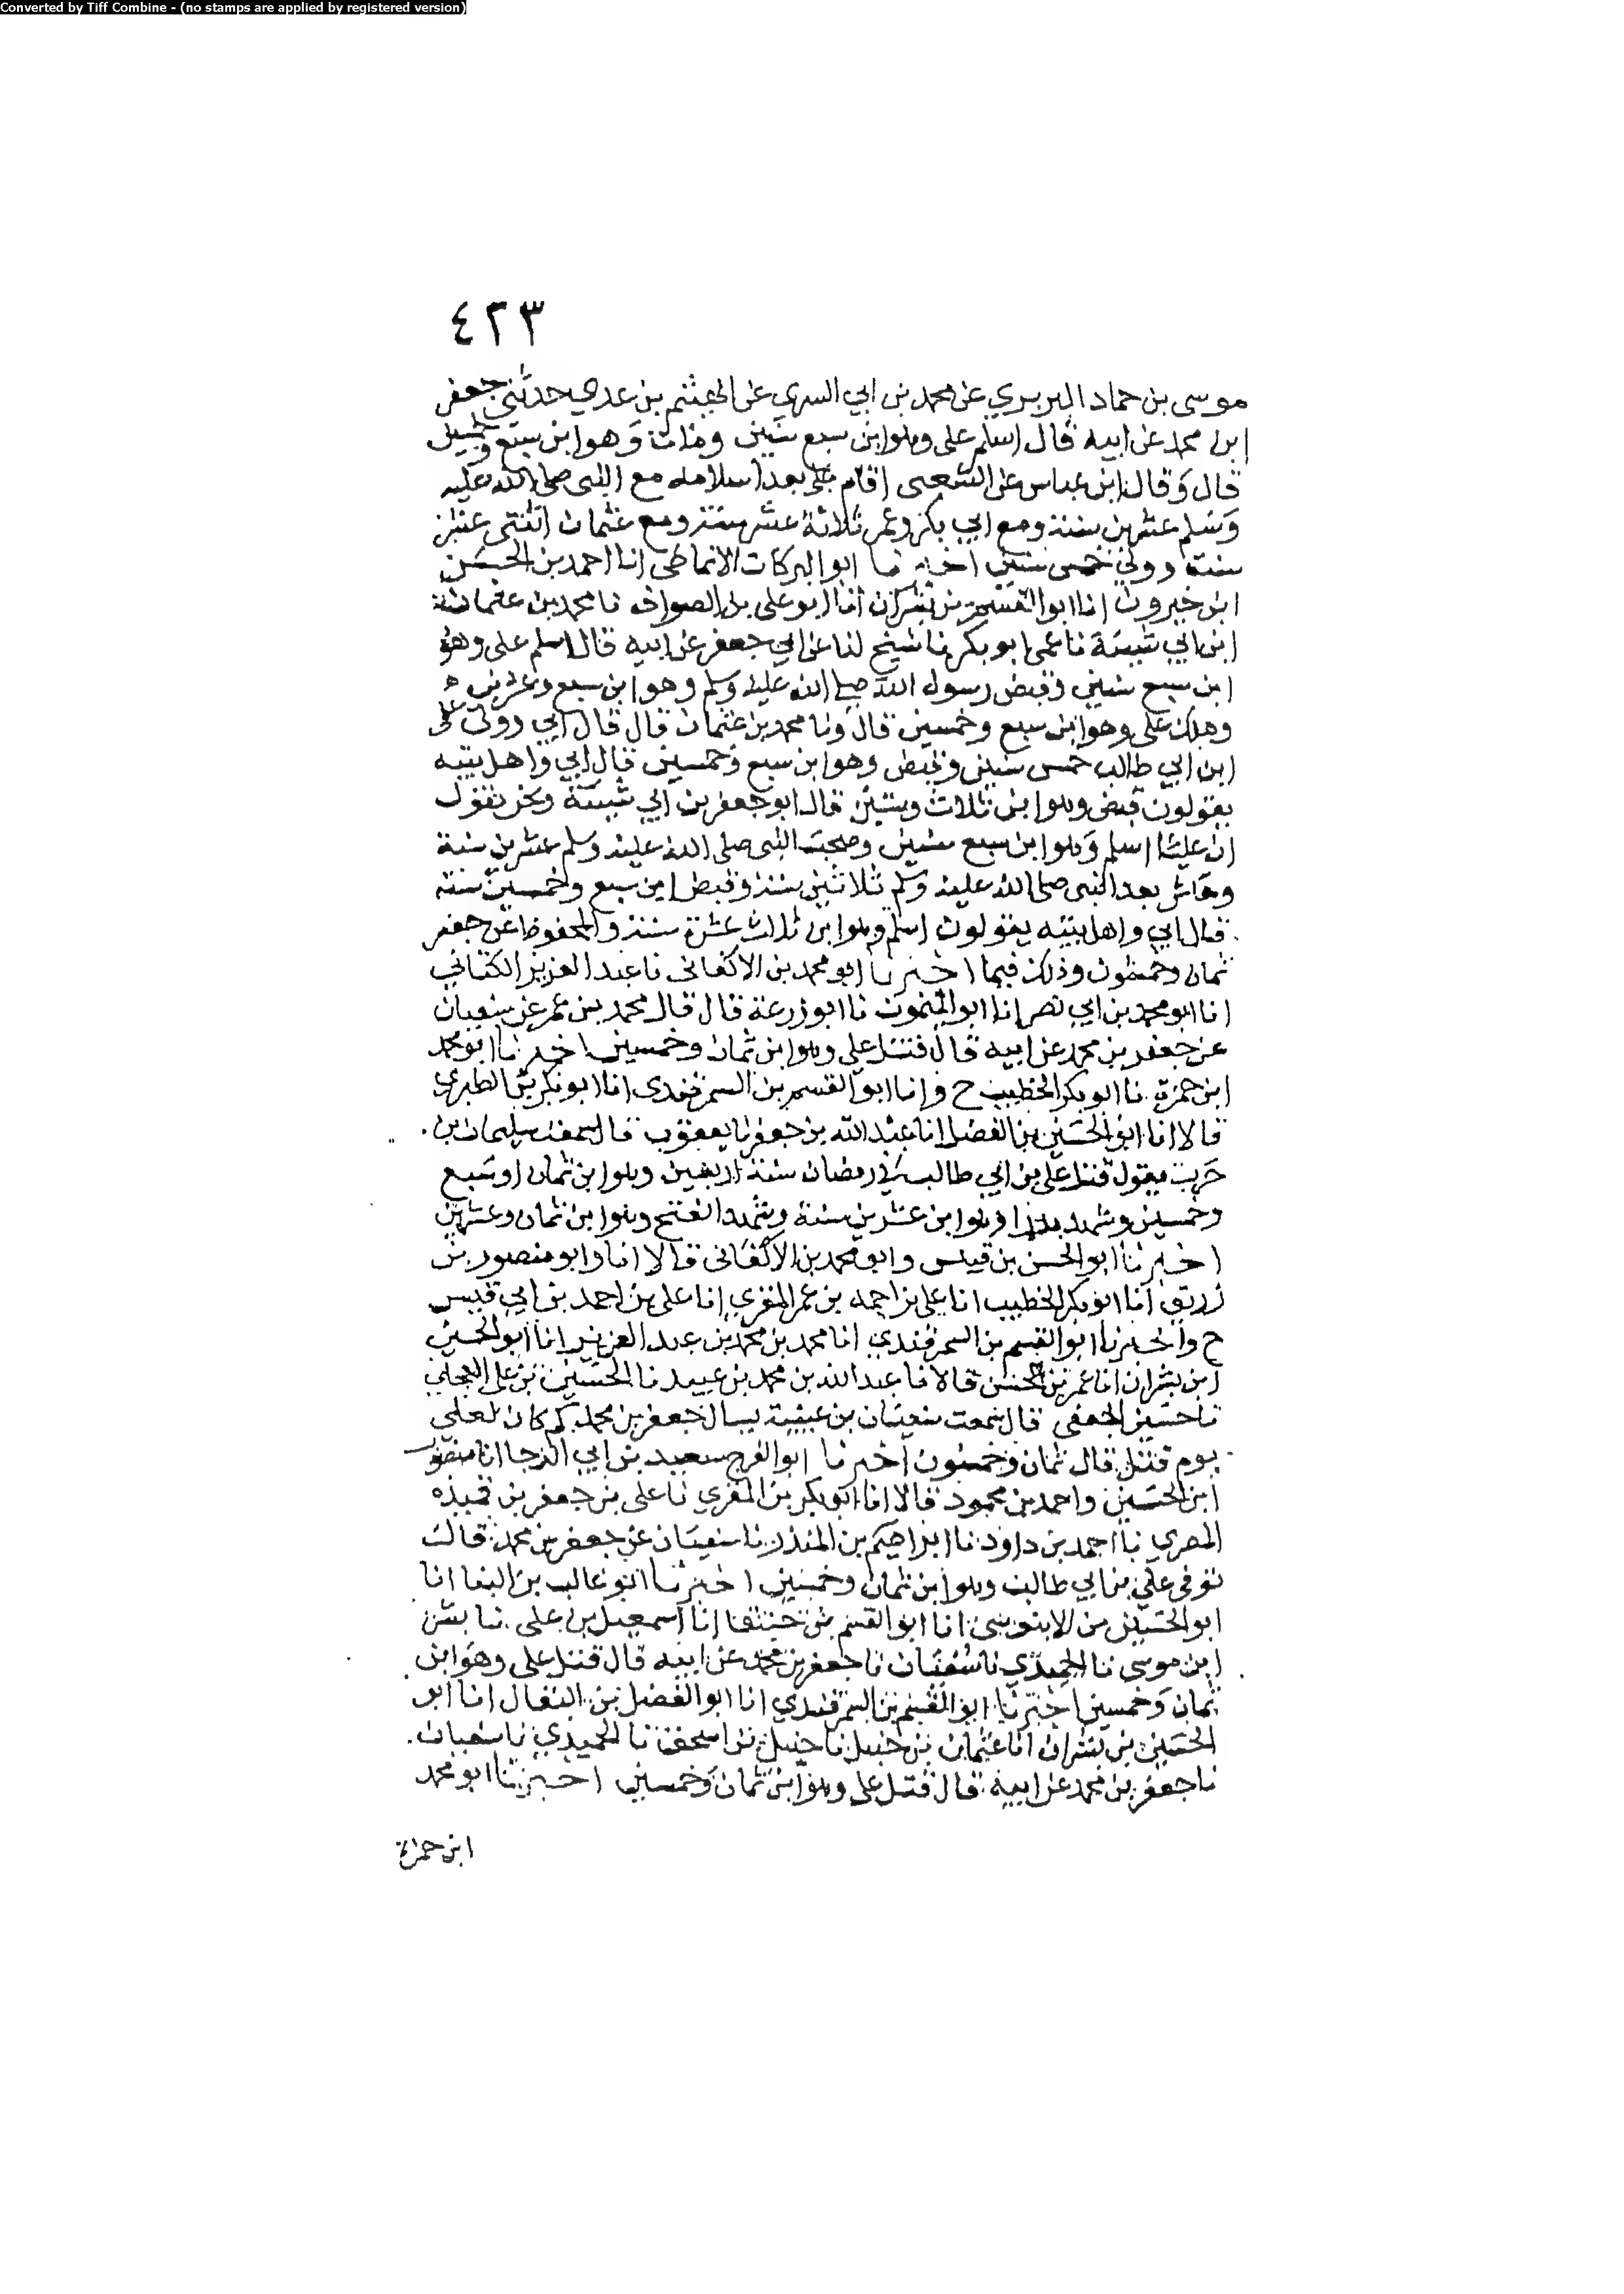 Converted by Tiff Combine - (no stamps are applied by registered version)
٤٢٣
موسى بن حماد البربري عن محمد بن ابي السري عن الهيثم بن عدي حدثني جعفر
ابن محمد عن ابيه قال اسلم على وهو ابن سبع سنين ومات وهو ابن سبع وخمسين
قال وقال ابن عباس عن الشعبى اقام على بعد اسلامه مع النبى صلى الله عليه
وسلم عشرين سنة ومع ابي بكر وعمر ثلاثة عشر سنة ومع عثمان اثنتى عشرة
سنة وولي خمس سنين اخبرنا ابو البركات الانماطى انا احمد بن الحسن
ابن خيرون انا ابو القسم بن بشران انا ابو على بن الصواف نا محمد بن عثمان
ابن ابي شيبة نا عمى ابو بكر نا شيخ لنا عن ابي جعفر عن ابيه قال اسلم على وهو
ابن سبع سنين وقبض رسول الله صلى الله عليه وسلم وهو ابن سبع وعشرين
وهلك على وهو ابن سبع وخمسين قال ونا محمد بن عثمان قال قال ابي وولى على
ابن ابي طالب خمس سنين وقبض وهو ابن سبع وخمسين قال ابي واهل بيته
يقولون قبض وهو ابن ثلاث وستين قال ابو جعفر بن ابي شيبة ونحن نقول
ان عليا اسلم وهو ابن سبع سنين وصحب النبى صلى الله عليه وسلم عشرين سنة
وعاش بعد النبى صلى الله عليه وسلم ثلاثين سنة وقبض ابن سبع وخمسين سنة
قال ابي واهل بيته يقولون اسلم وهو ابن ثلاث عشرة سنة والمحفوظ عن جعفر
ثمان وخمسون وذلك فيما اخبرنا ابو محمد بن الاكفانى نا عبد العزيز الكتاني
انا ابو محمد بن ابي نصر انا ابو الميمون نا ابو زرعة قال قال محمد بن عمر عن سفيان
عن جعفر بن محمد عن ابيه قال قتل على وهو ابن ثمان وخمسين اخبرنا ابو محمد
ابن حمزة نا ابو بكر الخطيب ح وانا ابو القسم بن السمرقندى انا ابو بكر بن الطبري
قالا انا ابو الحسين بن الفضل انا عبد الله بن جعفر نا يعقوب قال سمعت سليمان بن
حرب يقول قتل على بن ابي طالب في رمضان سنة اربعين وهو ابن ثمان او سبع
وخمسين وشهد بدرا وهو ابن عشرين سنة وشهد الفتح وهو ابن ثمان وعشرين
اخبرنا ابو الحسن بن قبيس وابو محمد بن الاكفانى قالا انا وابو منصور بن
زريق انا ابو بكر الخطيب انا على بن احمد بن عمر المقري انا على بن احمد بن ابي قيس
ح واخبرنا ابو القسم بن السمرقندي انا محمد بن محمد بن عبد العزيز انا ابو الحسين
ابن بشران انا عمر بن الحسن قالا نا عبد الله بن محمد بن عبيد نا الحسين بن على العجلي
نا حسين الجعفى قال سمعت سفيان بن عيينة يسال جعفر بن محمد كم كان لعلي
يوم قتل قال ثمان وخمسون اخبرنا ابو الفرج سعيد بن ابي الرجا انا منصور
ابن الحسين واحمد بن محمود قالا انا ابو بكر بن المقري نا على بن جعفر بن
المصري نا احمد بن داود نا ابراهيم بن المنذر نا سفيان عن جعفر بن محمد قال
توفى علي بن ابي طالب وهو ابن ثمان وخمسين اخبرنا ابو غالب بن البنا انا
ابو الحسين بن الابنوسى انا ابو القسم بن حنيفا انا اسمعيل بن على نا بشر
ابن موسى نا الحميدي نا سفيان نا جعفر بن محمد عن ابيه قال قتل على وهو ابن
ثمان وخمسين اخبرنا ابو القسم بن السمرقندي انا ابو الفضل بن البقال انا ابو
الحسين بن بشران انا عثمان بن حنبل نا حنبل بن اسحق نا الحميدي نا سفيان
نا جعفر بن محمد عن ابيه قال قتل على وهو ابن ثمان وخمسين اخبرنا ابو محمد
ابن حمزة